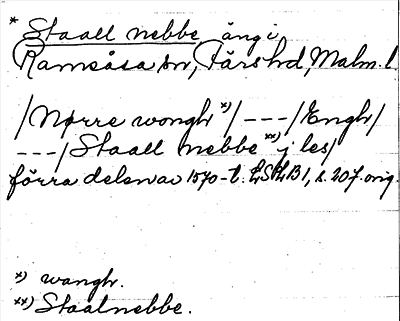 * Staall nebbe äng i
Ramsåsa sn, Färs hd, Malm. l
/Nørre wongh *)/ --- /Engh/
---/Staall nebbe **) j les/
förra delen av 1570-t. LSLB 1, s. 207. orig.
*) wangh.
**) Staalnebbe.